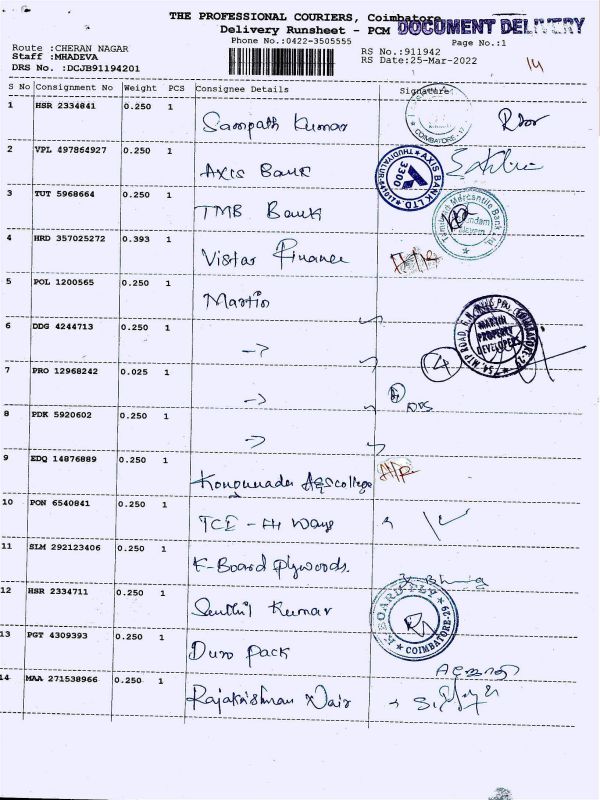 THE PROFESSIONAL COURIERS, Coimbatore
Delivery Runsheet - PCM DOCUMENT DELIVERY
Phone No.:0422-3505555 Page No.:1
Route :CHERAN NAGAR RS No.:911942
Staff :MHADEVA RS Date:25-Mar-2022 14
DRS No. :DCJB91194201
S No Consignment No Weight PCS Consignee Details Signature
1 HSR 2334841 0.250 1 Sampath Kumar COIMBATORE
2 VPL 497864927 0.250 1 Axis Bank AXIS BANK LTD 3300
3 TUT 5968664 0.250 1 TMB Bank Tamilnad Mercantile Bank Ltd.
4 HRD 357025272 0.393 1 Vistar Finance
5 POL 1200565 0.250 1 Martin
6 DDG 4244713 0.250 1 MARTIN PROPERTY DEVELOPERS
7 PRO 12968242 0.025 1 4
8 PDK 5920602 0.250 1
9 EDQ 14876889 0.250 1 Kongunadu A&S college
10 PON 6540841 0.250 1 TCE - Hi Ways
11 SLM 292123406 0.250 1 K-Board Plywoods.
12 HSR 2334711 0.250 1 Senthil Kumar COIMBATORE-29
13 PGT 4309393 0.250 1 Duro Pack
14 MAA 271538966 0.250 1 Rajakrishnan Nair